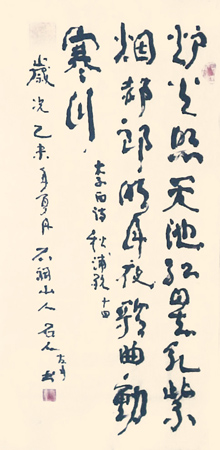 炉火照天地红星乱紫
烟赧郎明月夜歌曲動
寒川
李白诗 秋浦歌 十四
歲次乙未年夏月 山人 左手书